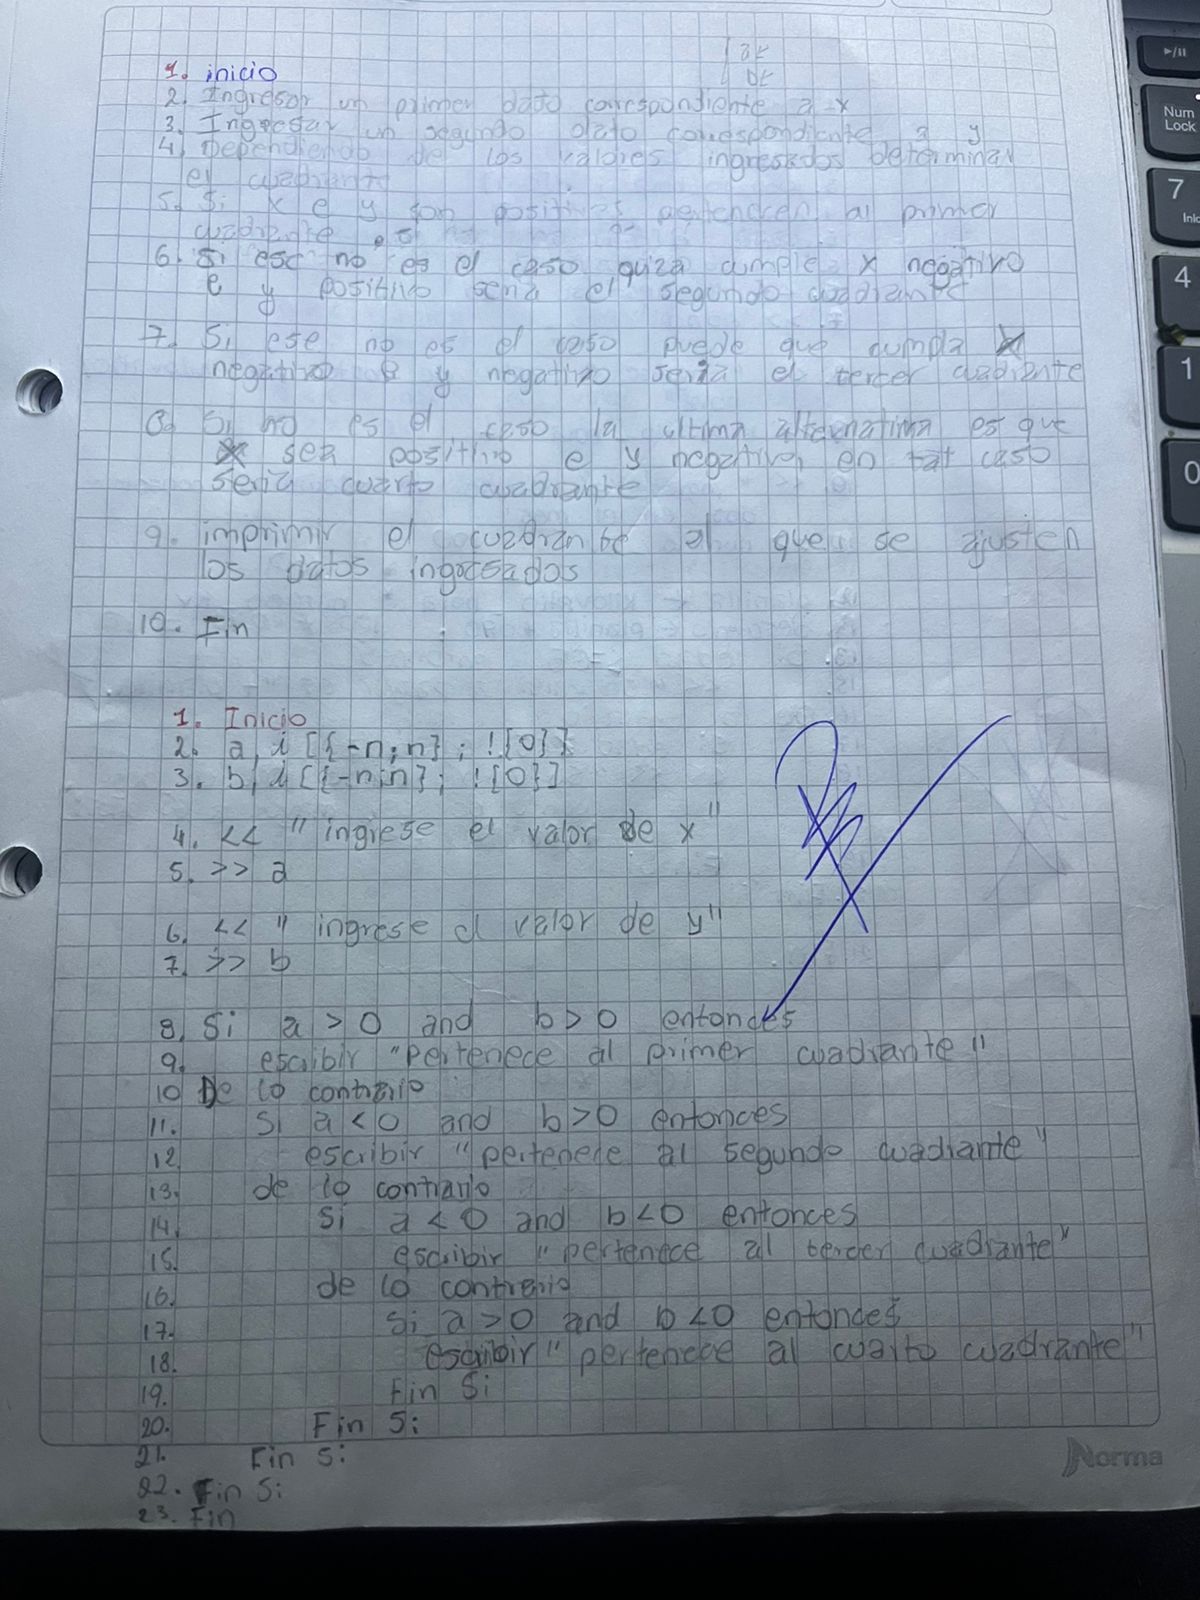 1. inicio
2. Ingresar un primer dato correspondiente a x
3. Ingresar un segundo dato correspondiente a y
4. Dependiendo de los valores ingresados determinar
el cuadrante
5. Si x e y son positivos pertenecen al primer
cuadrante
6. Si ese no es el caso quiza cumple x negativo
e y positivo seria el segundo cuadrante
7. Si ese no es el caso puede que cumpla x
negativo e y negativo seria el tercer cuadrante
8. Si no es el caso la ultima alternativa es que
x sea positivo e y negativo, en tal caso
seria cuarto cuadrante
9. imprimir el cuadrante al que se ajusten
los datos ingresados
10. Fin
1. Inicio
2. a, i [{-n;n} ; ![0]]
3. b, i [{-n;n} ; ![0]]
4. << "ingrese el valor de x"
5. >> a
6. << "ingrese el valor de y"
7. >> b
8. Si a > 0 and b > 0 entonces
9. escribir "Pertenece al primer cuadrante"
10 De lo contrario
11. Si a < 0 and b > 0 entonces
12 escribir "pertenece al segundo cuadrante"
13. de lo contrario
14. Si a < 0 and b < 0 entonces
15. escribir "pertenece al tercer cuadrante"
16. de lo contrario
17. Si a > 0 and b < 0 entonces
18. escribir "pertenece al cuarto cuadrante"
19. Fin Si
20. Fin Si
21. Fin Si
22. Fin Si
23. Fin
Norma
Num
Lock
7
4
1
0